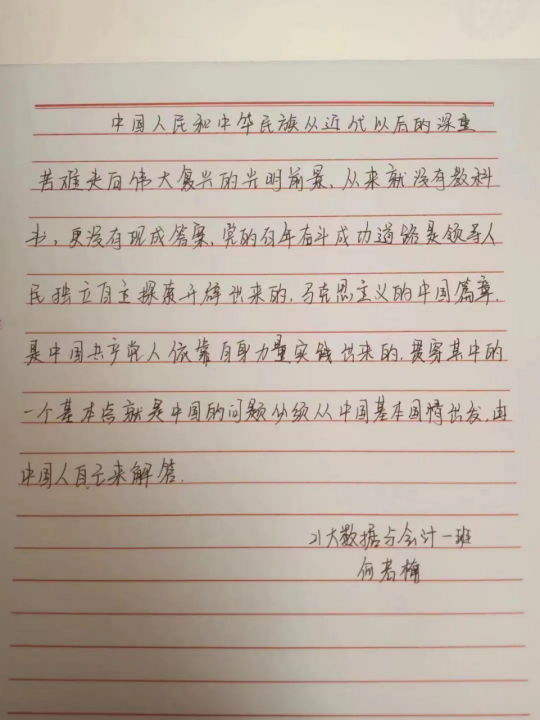 中国人民和中华民族从近代以后的深重
苦难走向伟大复兴的光明前景,从来就没有教科
书,更没有现成答案,党的百年奋斗成功道路是领导人
民独立自主探索开辟出来的,马克思主义的中国篇章.
是中国共产党人依靠自身力量实践出来的,贯穿其中的
一个基本点就是中国的问题必须从中国基本国情出发,由
中国人自己来解答.
21大数据与会计一班
何若梅